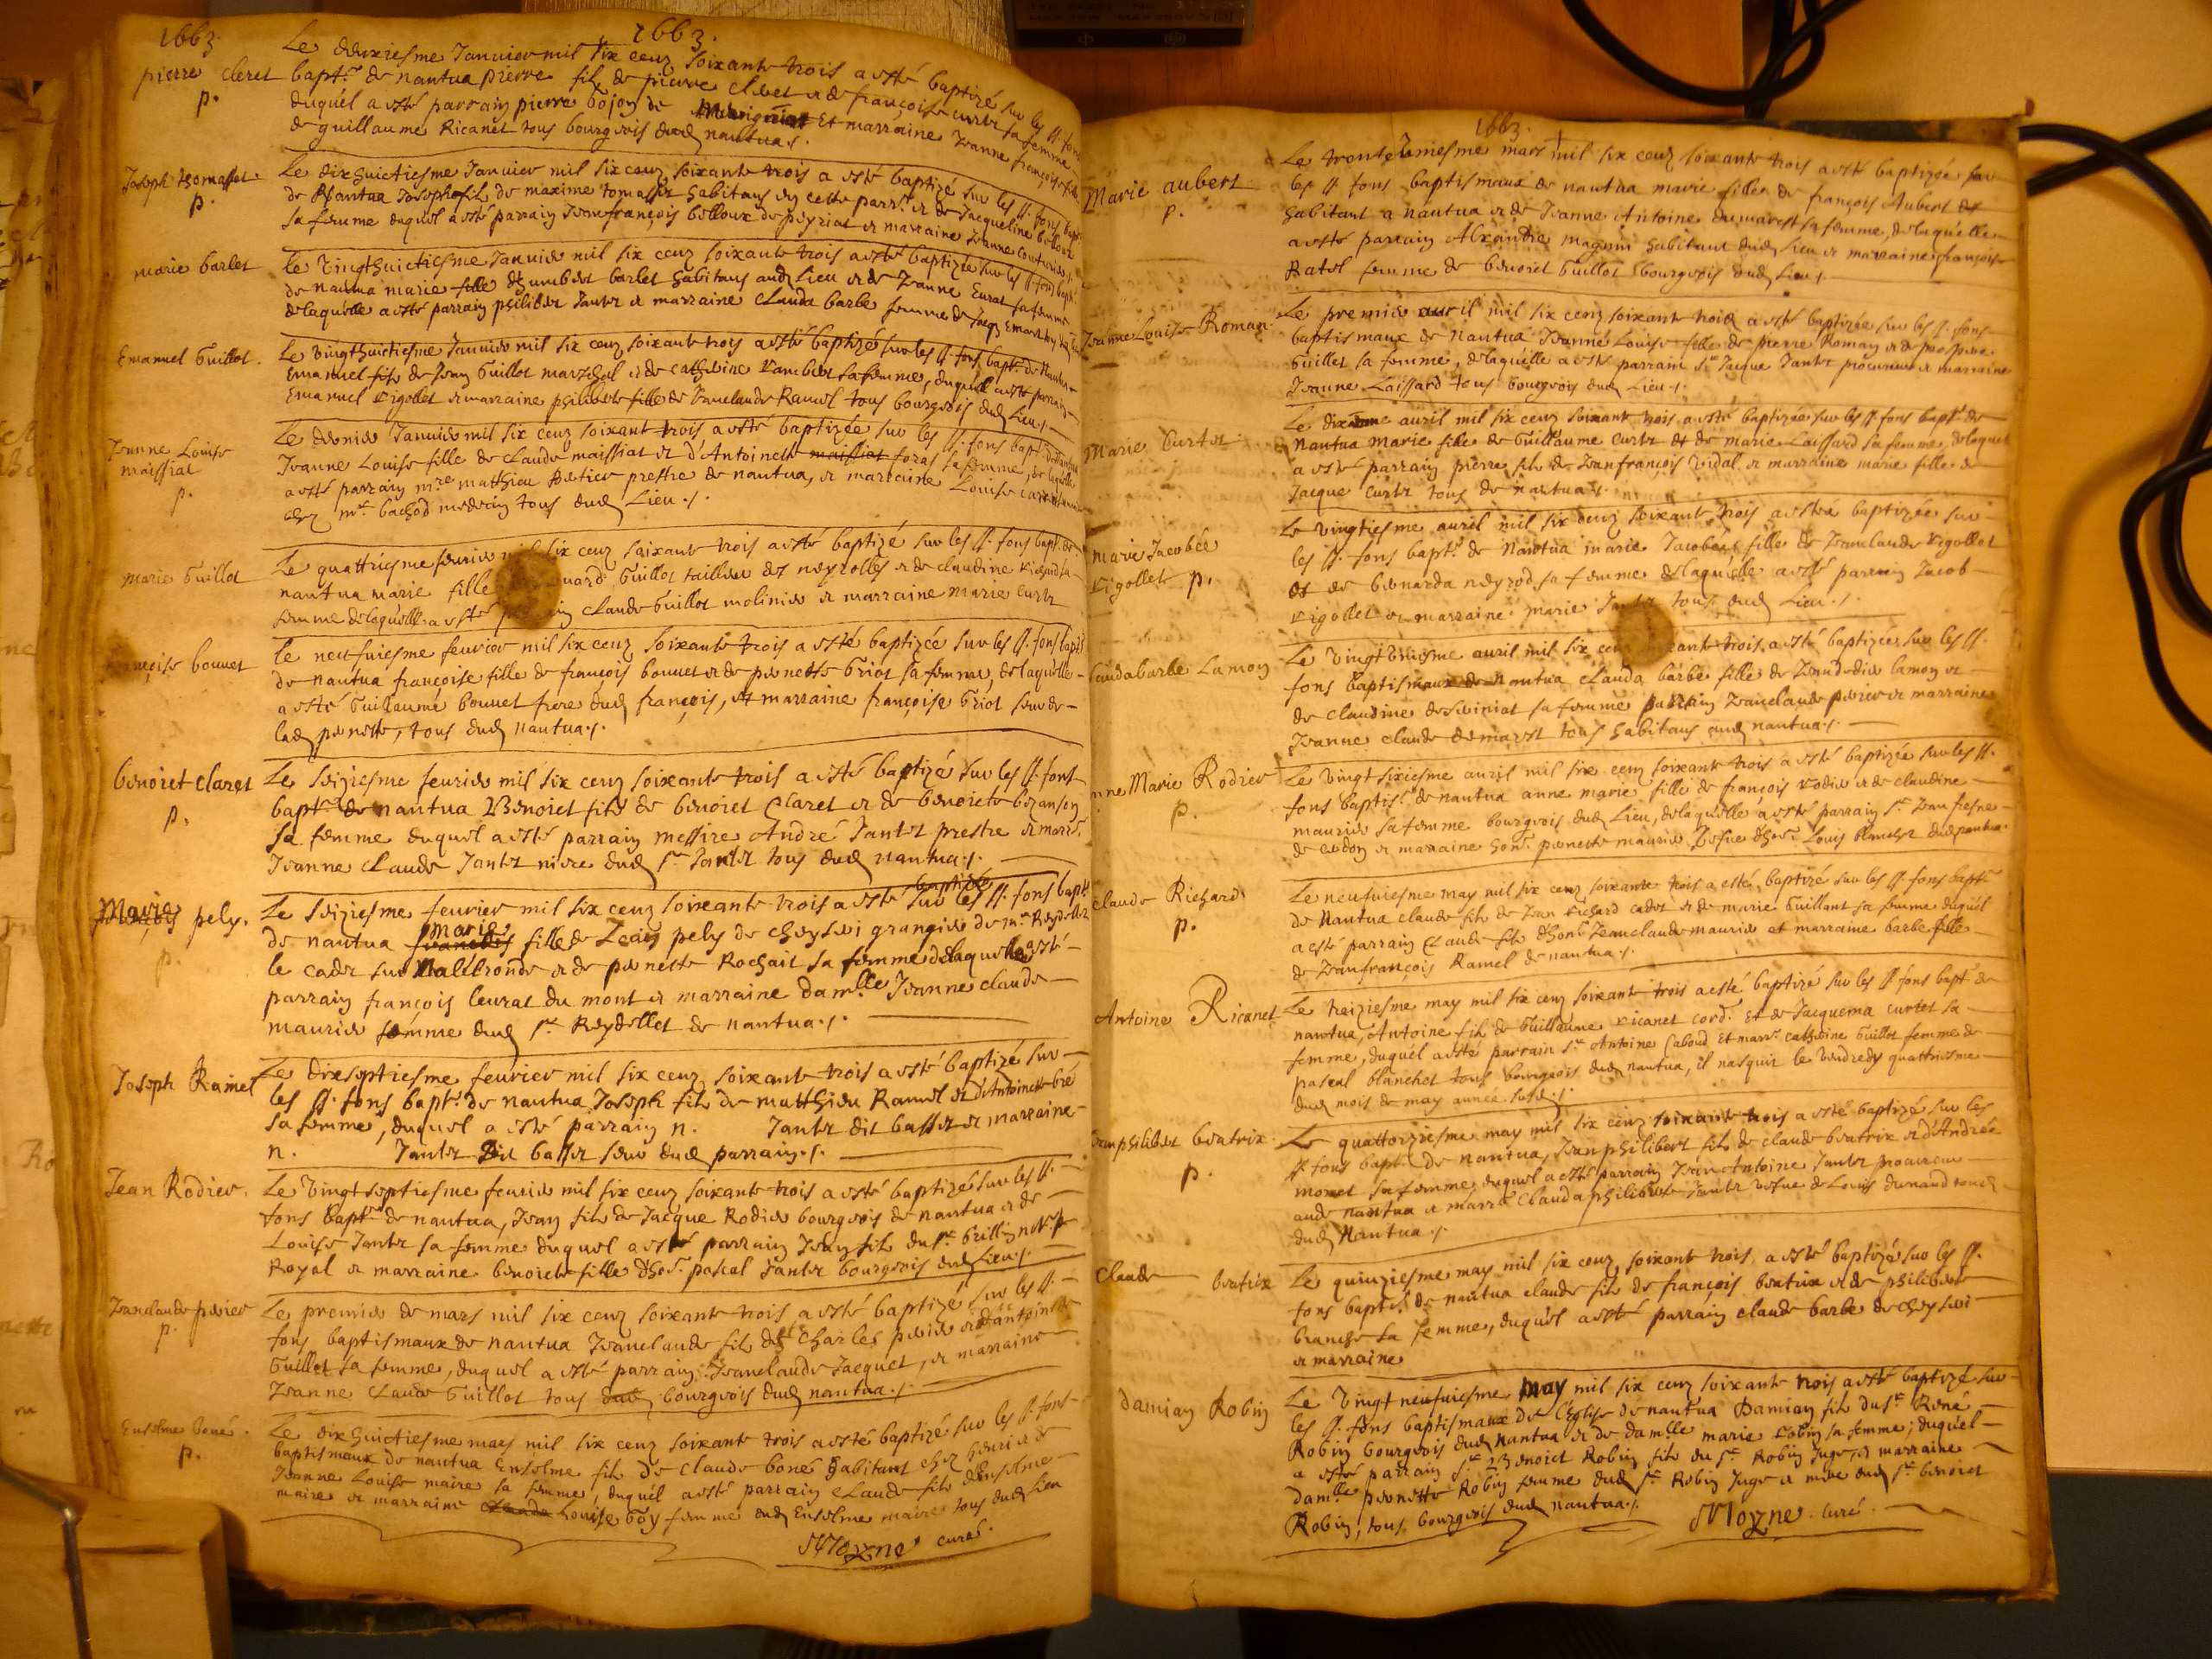 1663.
1663.
pierre cleret
p.
Le deuxiesme Januier mil six cenz soixante trois a esté baptizé sur les ss. fons
bapt. de nantua pierre filz de pierre cleret et de françoise curtet sa femme
duquel a esté parrain pierre Gojon de et marraine Jeanne françoise fille
de guillaume Ricanet tous bourgeois dud nantua ./.
Joseph thomasset
p.
Le dixhuictiesme Januier mil six cenz soixante trois a esté baptizé sur les ss. fons bapt.
de Nantua Joseph filz de maxime tomasset habitans en cette parr. et de Jacqueline belloux
sa femme duquel a esté parrain Jeanfrançois belloux de peyriat et marraine Jeanne
marie barlet
Le vingthuictiesme Januier mil six cenz soixante trois a esté baptizée sur les ss. fons bapt.
de nantua marie fille d'humbert barlet habitans aud Lieu et de Jeanne Eurat sa femme
delaquelle a esté parrain philibert Jantet et marraine Clauda barbe femme de Jacq
Emanuel Guillot.
Le vingthuictiesme Januier mil six cenz soixante trois a esté baptizé sur les ss. fons bapt. de Nantua
Emanuel filz de Jean Guillot mareschal et de catherine Lambert sa femme, duquel a esté parrain
Emanuel vigollet et marraine philiberte fille de Jeanclaude Ramel tous bourgeois dud Lieu ./.
Jeanne Louise
maissiat
p.
Le dernier Januier mil six cenz soixant trois a esté baptizée sur les ss. fons bapt. de nantua
Jeanne Louise fille de claude maissiat et d'Antoinette maissiat foras sa femme, de laquelle
a esté parrain mre matthieu pretier prestre de nantua, et marraine Louise
chez mr. bachod medecin tous dud Lieu ./.
marie Guillot
Le quattriesme feurier mil six cenz soixante trois a esté baptizé sur les ss. fons bapt. de
nantua marie fille Guillot tailleur des neyrolles et de claudine Richard sa
femme delaquelle a esté claude Guillot molinier et marraine marie curtet
françoise bonnet
Le neufuiesme feurier mil six cenz soixante trois a esté baptizée sur les ss. fons bapt.
de nantua françoise fille de françois bonnet et de pernette Griot sa femme, delaquelle
a esté Guillaume bonnet frere dud françois, et marraine françoise Griot seur de
lad pernette, tous dud nantua ./.
benoict claret
p.
Le seiziesme feurier mil six cenz soixante trois a esté baptizé sur les ss. fons
bapt. de nantua Benoict filz de benoict Claret et de benoicte bezanson
sa femme duquel a esté parrain messire André Jantet prestre et marr.
Jeanne claude Jantet niece dud sr. Jantet tous dud nantua ./.
Marie
françois pely.
p.
Le seiziesme feurier mil six cenz soixante trois a esté baptizée sur les ss. fons bapt.
de nantua francois marie fille de Jean pely de cheyseri grangier de mr. Reydellet
le cadet sur Malebronde et de pernette Rochait sa femme delaquelle a esté
parrain françois leurat du mont et marraine damlle Jeanne claude
maurier femme dud sr. Reydellet de nantua ./.
Joseph Ramel
Le dixseptiesme feurier mil six cenz soixante trois a esté baptizé sur
les ss. fons bapt. de nantua Joseph filz de matthieu Ramel et d'Antoinette bré
sa femme, duquel a esté parrain n. Jantet dit basset et marraine
n. Jantet dit basset seur dud parrain ./.
Jean Rodier.
Le vingt septiesme feurier mil six cenz soixante trois a esté baptizé sur les ss.
fons bapt. de nantua, Jean filz de Jacque Rodier bourgeois de nantua et de
Louise Jantet sa femme duquel a esté parrain Jean filz du sr. brillin not.
Royal et marraine benoicte fille d'hon. pascal Jantet bourgeois dud Lieu ./.
Jeanclaude perier
p.
Le premier de mars mil six cenz soixante trois a esté baptizé sur les ss.
fons baptismaux de nantua Jeanclaude filz de Charles perier et d'antoinette
Guillot sa femme, duquel a esté parrain Jeanclaude Jacquet, et marraine
Jeanne claude Guillot tous dud bourgeois dud nantua ./.
Enselme boné.
p.
Le dixhuictiesme mars mil six cenz soixante trois a esté baptizé sur les ss. fons
baptismaux de nantua Enselme filz de claude boné habitant chez henri et de
Jeanne Louise maire sa femme, duquel a esté parrain claude filz d'Enselme
maire et marraine claude Louise boy femme dud Enselme maire tous dud Lieu
Moyne curé.
1663.
Marie aubert
p.
Le trente uniesme mars mil six cenz soixante trois a esté baptizée sur
les ss. fons baptismaux de nantua marie fille de françois Aubert et
habitant a nantua et de Jeanne Antoine dumarest sa femme, delaquelle
a esté parrain Alexandre magnin habitant dud Lieu et marraine françoise
Ratel femme de benoict Guillot bourgeois dud Lieu ./.
Jeanne Louise Roman
Le premier auril mil six cenz soixante trois a esté baptizée sur les ss. fons
baptismaux de nantua Jeanne Louise fille de pierre Roman et de prospere
Guillot sa femme, delaquelle a esté parrain sr. Jacque Jantet procureur et marraine
Jeanne Laissard tous bourgeois dud Lieu ./.
Marie Curtet
Le dixiesme auril mil six cenz soixante trois a esté baptizée sur les ss. fons bapt. de
nantua marie fille de Guillaume curtet et de marie Laissard sa femme, delaquel
a esté parrain pierre filz de Jeanfrançois vidal et marraine marie fille de
Jacque curtet tous de nantua ./.
Marie Jacobée
vigollet p.
Le vingtiesme auril mil six cenz soixante trois a esté baptizée sur
les ss. fons bapt. de Nantua marie Jacobée fille de Jeanclaude vigollet
et de bernarda neyrod sa femme delaquelle a esté parrain Jacob
vigollet et marraine marie Jantet tous dud Lieu ./.
Claudabarbe Lamon
Le vingt uniesme auril mil six cenz soixante trois a esté baptizée sur les ss.
fons baptismaux de Nantua Clauda barbe fille de Jean didier lamon et
de claudine desseiniat sa femme parrain Jeanclaude perier et marraine
Jeanne claude demarest tous habitans aud nantua ./.
anne Marie Rodier
p.
Le vingt sixiesme auril mil six cenz soixante trois a esté baptizée sur les ss.
fons baptis. de nantua anne marie fille de françois rodier et de claudine
maurier sa femme bourgeois dud Lieu, delaquelle a esté parrain sr. Jean fresne
de cerdon et marraine hon. pernette maurier vefue d'hon. Louis blanchet dud nantua.
Claude Richard
p.
Le neufuiesme may mil six cenz soixante trois a esté baptizé sur les ss. fons bapt.
de Nantua claude filz de Jean richard cadet et de marie Guillant sa femme duquel
a esté parrain Claude filz d'hon. Jeanclaude maurier et marraine barbe fille
de Jeanfrançois Ramel de nantua ./.
Antoine Ricanet
Le treiziesme may mil six cenz soixante trois a esté baptizé sur les ss. fons bapt. de
nantua, Antoine filz de Guillaume ricanet cord. et de Jacquema curtet sa
femme, duquel a esté parrain sr. Antoine Caboud et marr. catherine Guillot femme de
pascal blanchet tous bourgeois dud nantua, il nasquit le vendredy quattriesme
dud mois de may annee susd. ./.
Jeanphilibert beatrix.
p.
Le quattorziesme may mil six cenz soixante trois a esté baptizé sur les
ss fons bapt. de nantua, Jean philibert filz de claude beatrix et d'Andrée
monet sa femme duquel a esté parrain Jean Antoine Jantet procureur
aude nantua et marr. Clauda philiberte Jantet vefue de Louis dunand tous
dud Nantua ./.
Claude beatrix
Le quinziesme may mil six cenz soixante trois a esté baptizé sur les ss.
fons baptis. de nantua claude filz de françois beatrix et de philiberte
branche sa femme, duquel a esté parrain claude barbe de cheyseri
et marraine
Damian Robin
Le vingt neufuiesme may mil six cenz soixante trois a esté baptizé sur
les ss. fons baptismaux de l'eglise de nantua Damian filz du sr. René
Robin bourgeois dud nantua et de damlle marie robin sa femme; duquel
a esté parrain sr. Benoict Robin filz du sr. Robin Juge, et marraine
damlle pernette Robin femme dud sr. Robin Juge et mere dud sr. benoict
Robin, tous bourgeois dud nantua ./.
Moyne. Curé.